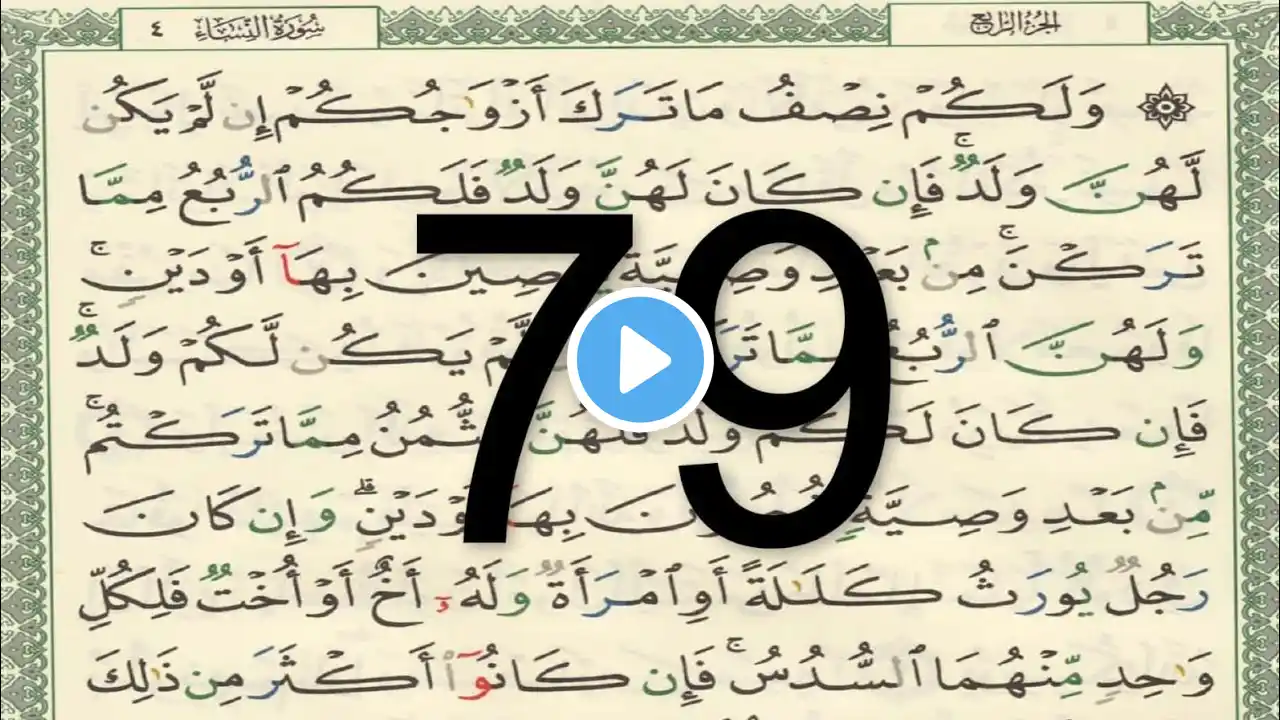 الجزء الرابع
سورة النساء ٤
۞ وَلَكُمْ نِصْفُ مَا تَرَكَ أَزْوَٰجُكُمْ إِن لَّمْ يَكُن
لَّهُنَّ وَلَدٌ ۚ فَإِن كَانَ لَهُنَّ وَلَدٌ فَلَكُمُ ٱلرُّبُعُ مِمَّا
تَرَكْنَ ۚ مِنۢ بَعْدِ وَصِيَّةٍ يُوصِينَ بِهَآ أَوْ دَيْنٍ ۚ
وَلَهُنَّ ٱلرُّبُعُ مِمَّا تَرَ لَّمْ يَكُن لَّكُمْ وَلَدٌ ۚ
فَإِن كَانَ لَكُمْ وَلَدٌ فَلَهُنَّ ٱلثُّمُنُ مِمَّا تَرَكْتُم ۚ
مِّنۢ بَعْدِ وَصِيَّةٍ بِهَآ أَوْ دَيْنٍ ۗ وَإِن كَانَ
رَجُلٌ يُورَثُ كَلَٰلَةً أَوِ ٱمْرَأَةٌ وَلَهُۥٓ أَخٌ أَوْ أُخْتٌ فَلِكُلِّ
وَٰحِدٍ مِّنْهُمَا ٱلسُّدُسُ ۚ فَإِن كَانُوٓا۟ أَكْثَرَ مِن ذَٰلِكَ
79